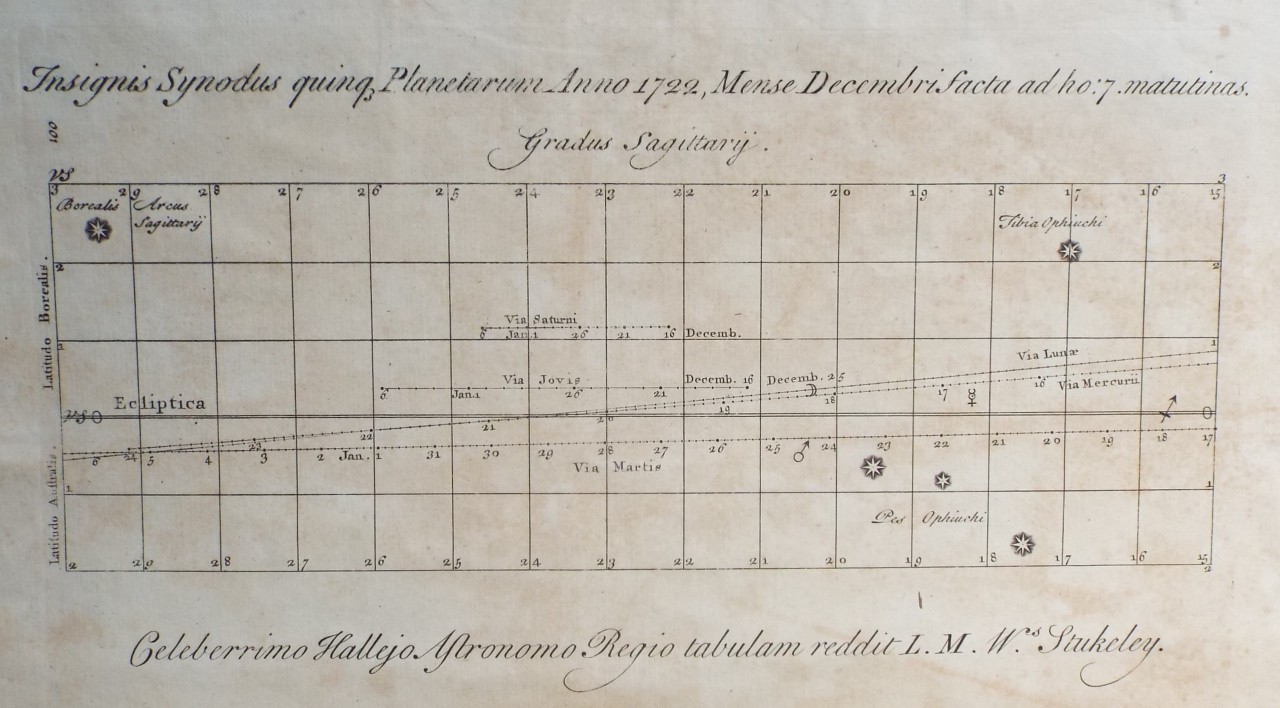 Insignis Synodus quinq; Planetarum Anno 1722, Mense Decembri facta ad ho: 7. matutinas.
100
Gradus Sagittarij.
♑
3 29 28 27 26 25 24 23 22 21 20 19 18 17 16 15 3
Borealis Arcus
Sagittarij
Tibia Ophiuchi
2 2
Latitudo Borealis.
Via Saturni
6 Jan. 1 26 21 16 Decemb.
1 1
Via Lunæ
Via Jovis Decemb. 16 Decemb. 25
6 Jan. 1 26 21 19 18 17 ☿ 16 Via Mercurii
Ecliptica
♑ 0 20 ♐ 0
24 23 22 21
6 5 4 3 2 Jan. 1 31 30 29 28 27 26 25 ♂ 24 23 22 21 20 19 18 17
Via Martis
Latitudo Australis.
1 1
Pes Ophiuchi
2 29 28 27 26 25 24 23 22 21 20 19 18 17 16 15 2
Celeberrimo Hallejo Astronomo Regio tabulam reddit L. M. W.s Stukeley.